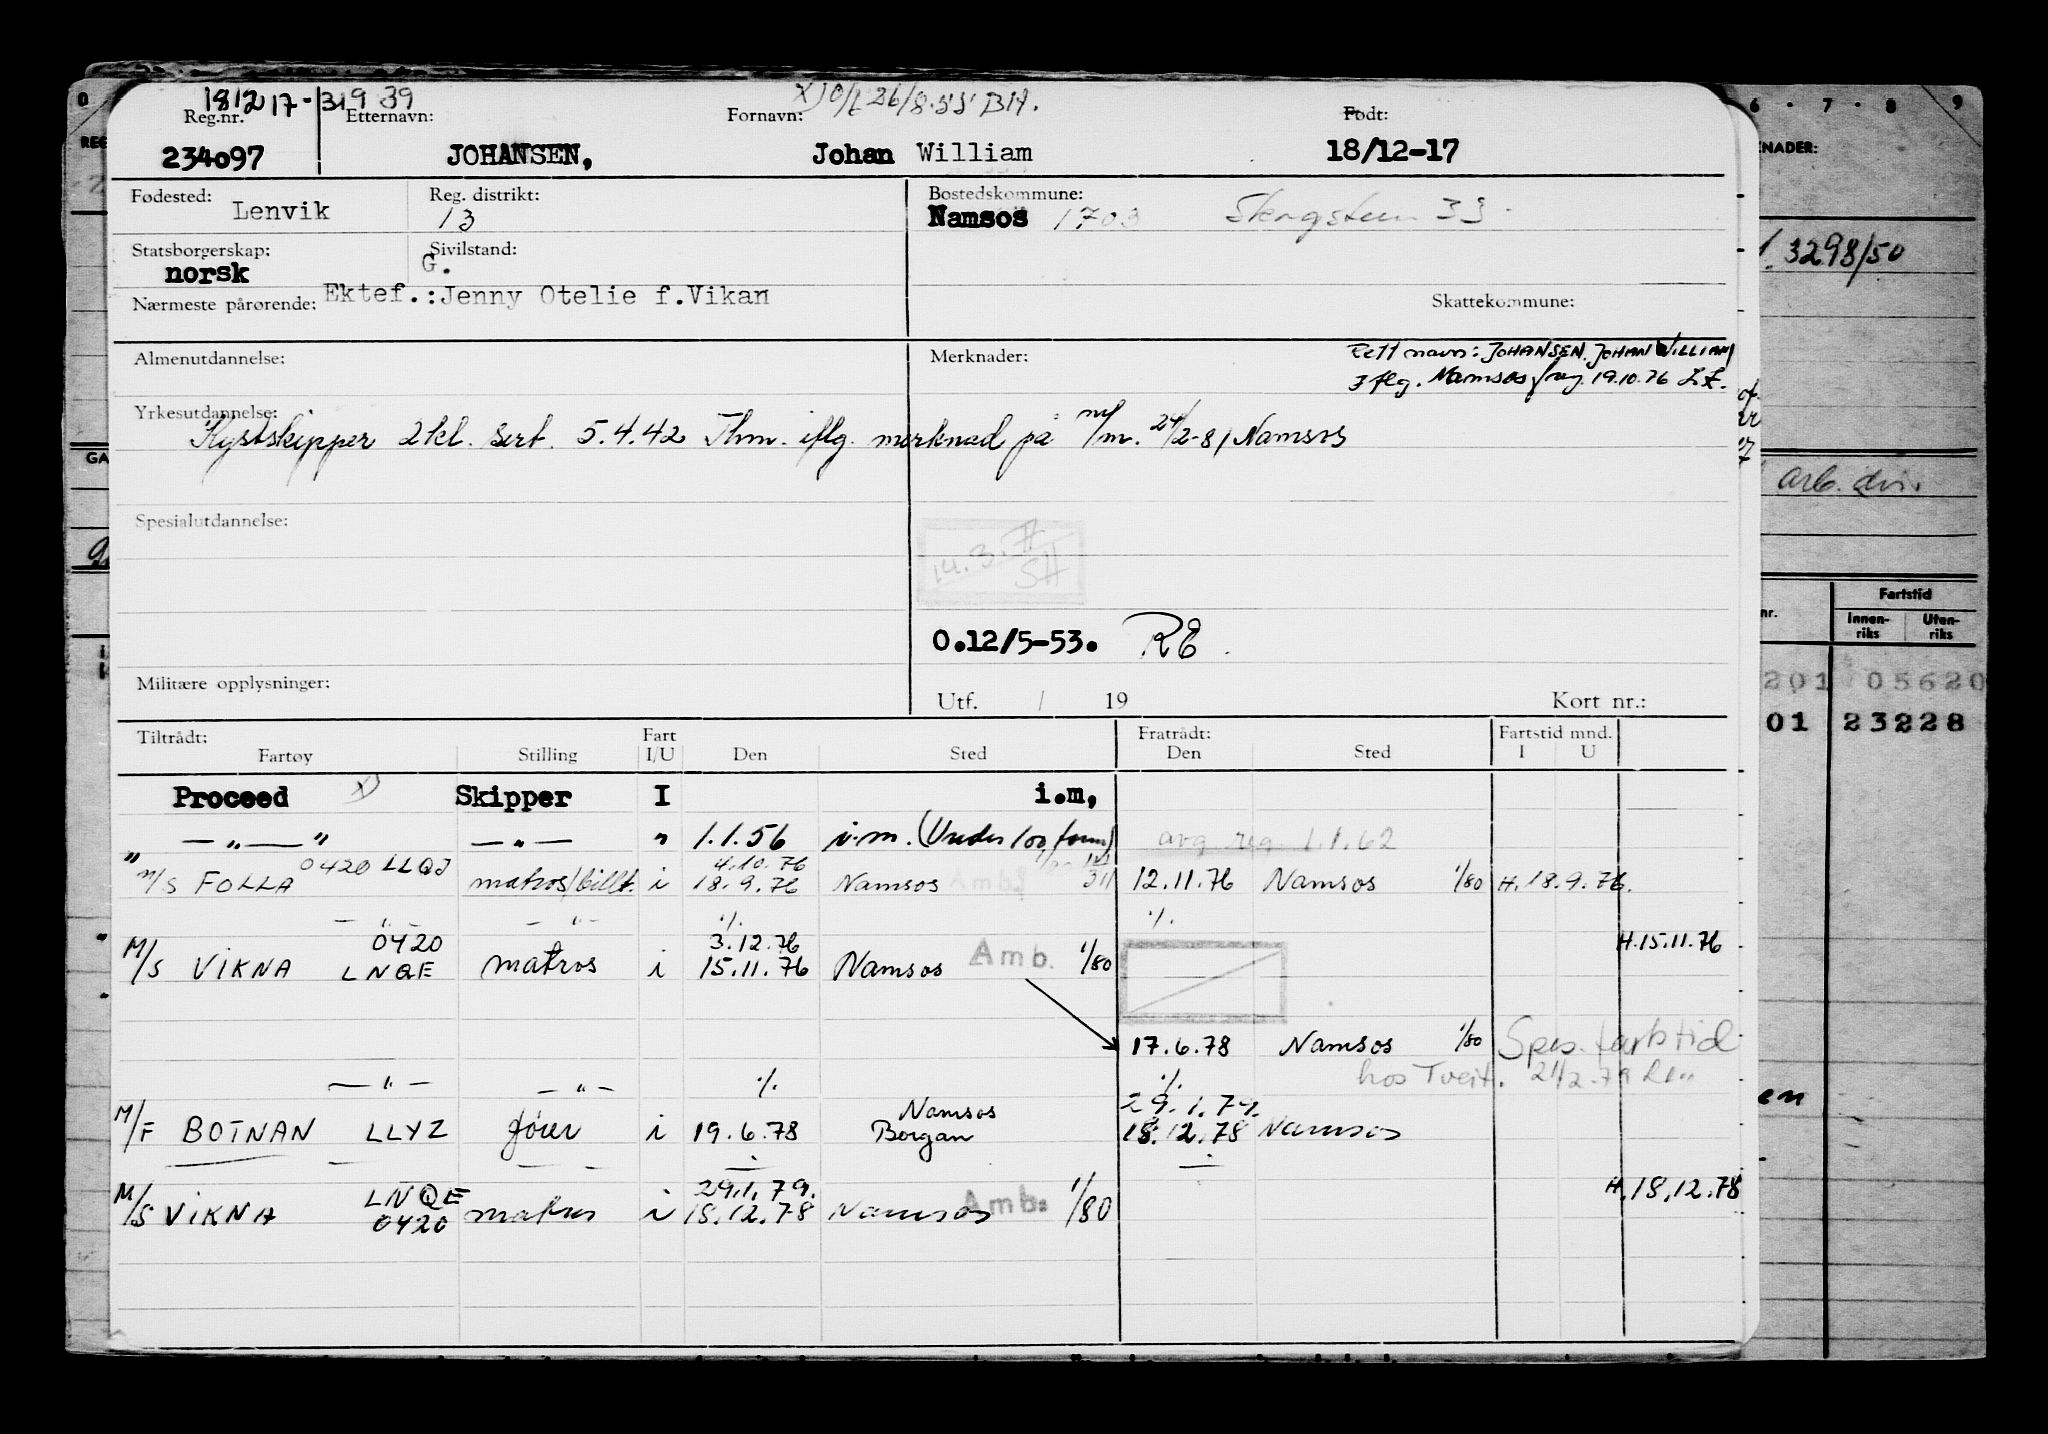 181217-31939 X) O/L 26/8-55 BH.
Reg.nr. Etternavn: Fornavn: Født:
234097 JOHANSEN, Johan William 18/12-17
Fødested: Lenvik Reg. distrikt: 13 Bostedskommune: Namsos 1703
Statsborgerskap: norsk Sivilstand: G.
Nærmeste pårørende: Ektef.:Jenny Otelie f.Vikan Skattekommune:
Almenutdannelse: Merknader: Rett navn: JOHANSEN, JOHAN WILLIAM
iflg. Namsos 19.10.76
Yrkesutdannelse: Kystskipper 2kl. sert. 5.4.42 Thm. iflg. merknad på m/m. 24/2-81 Namsos
Spesialutdannelse: 14.3.77 SH
0.12/5-53. RE.
Militære opplysninger: Utf. / 19 Kort nr.:
Tiltrådt: Fart Fratrådt: Fartstid mnd.
Fartøy Stilling I/U Den Sted Den Sted I U
Proceed X) Skipper I i.m,
" — " — " — " — " 1.1.56 i.m. (Under 100 avg reg. 1.1.62
0420 LLQJ 4.10.76
M/S FOLLA matros/billt. i 18.9.76 Namsos 12.11.76 Namsos 1/80 H.18.9.76.
— " — — " — ./. ./.
0420 3.12.76 H.15.11.76
M/S VIKNA LNQE matros i 15.11.76 Namsos Amb. 1/80
17.6.78 Namsos 1/80 Spes. fartstid
— " — — " — ./. ./. hos Tveit. 21/2.79
Namsos 29.1.79.
M/F BOTNAN LLYZ fører i 19.6.78 Borgan 18.12.78 Namsos
LNQE 29.1.79. H.18.12.78
M/S VIKNA 0420 matros i 18.12.78 Namsos Amb. 1/80
6 · 7 · 8 · 9
3298/50
arb. div.
Fartstid
Innen-riks Uten-riks
201 05620
01 23228